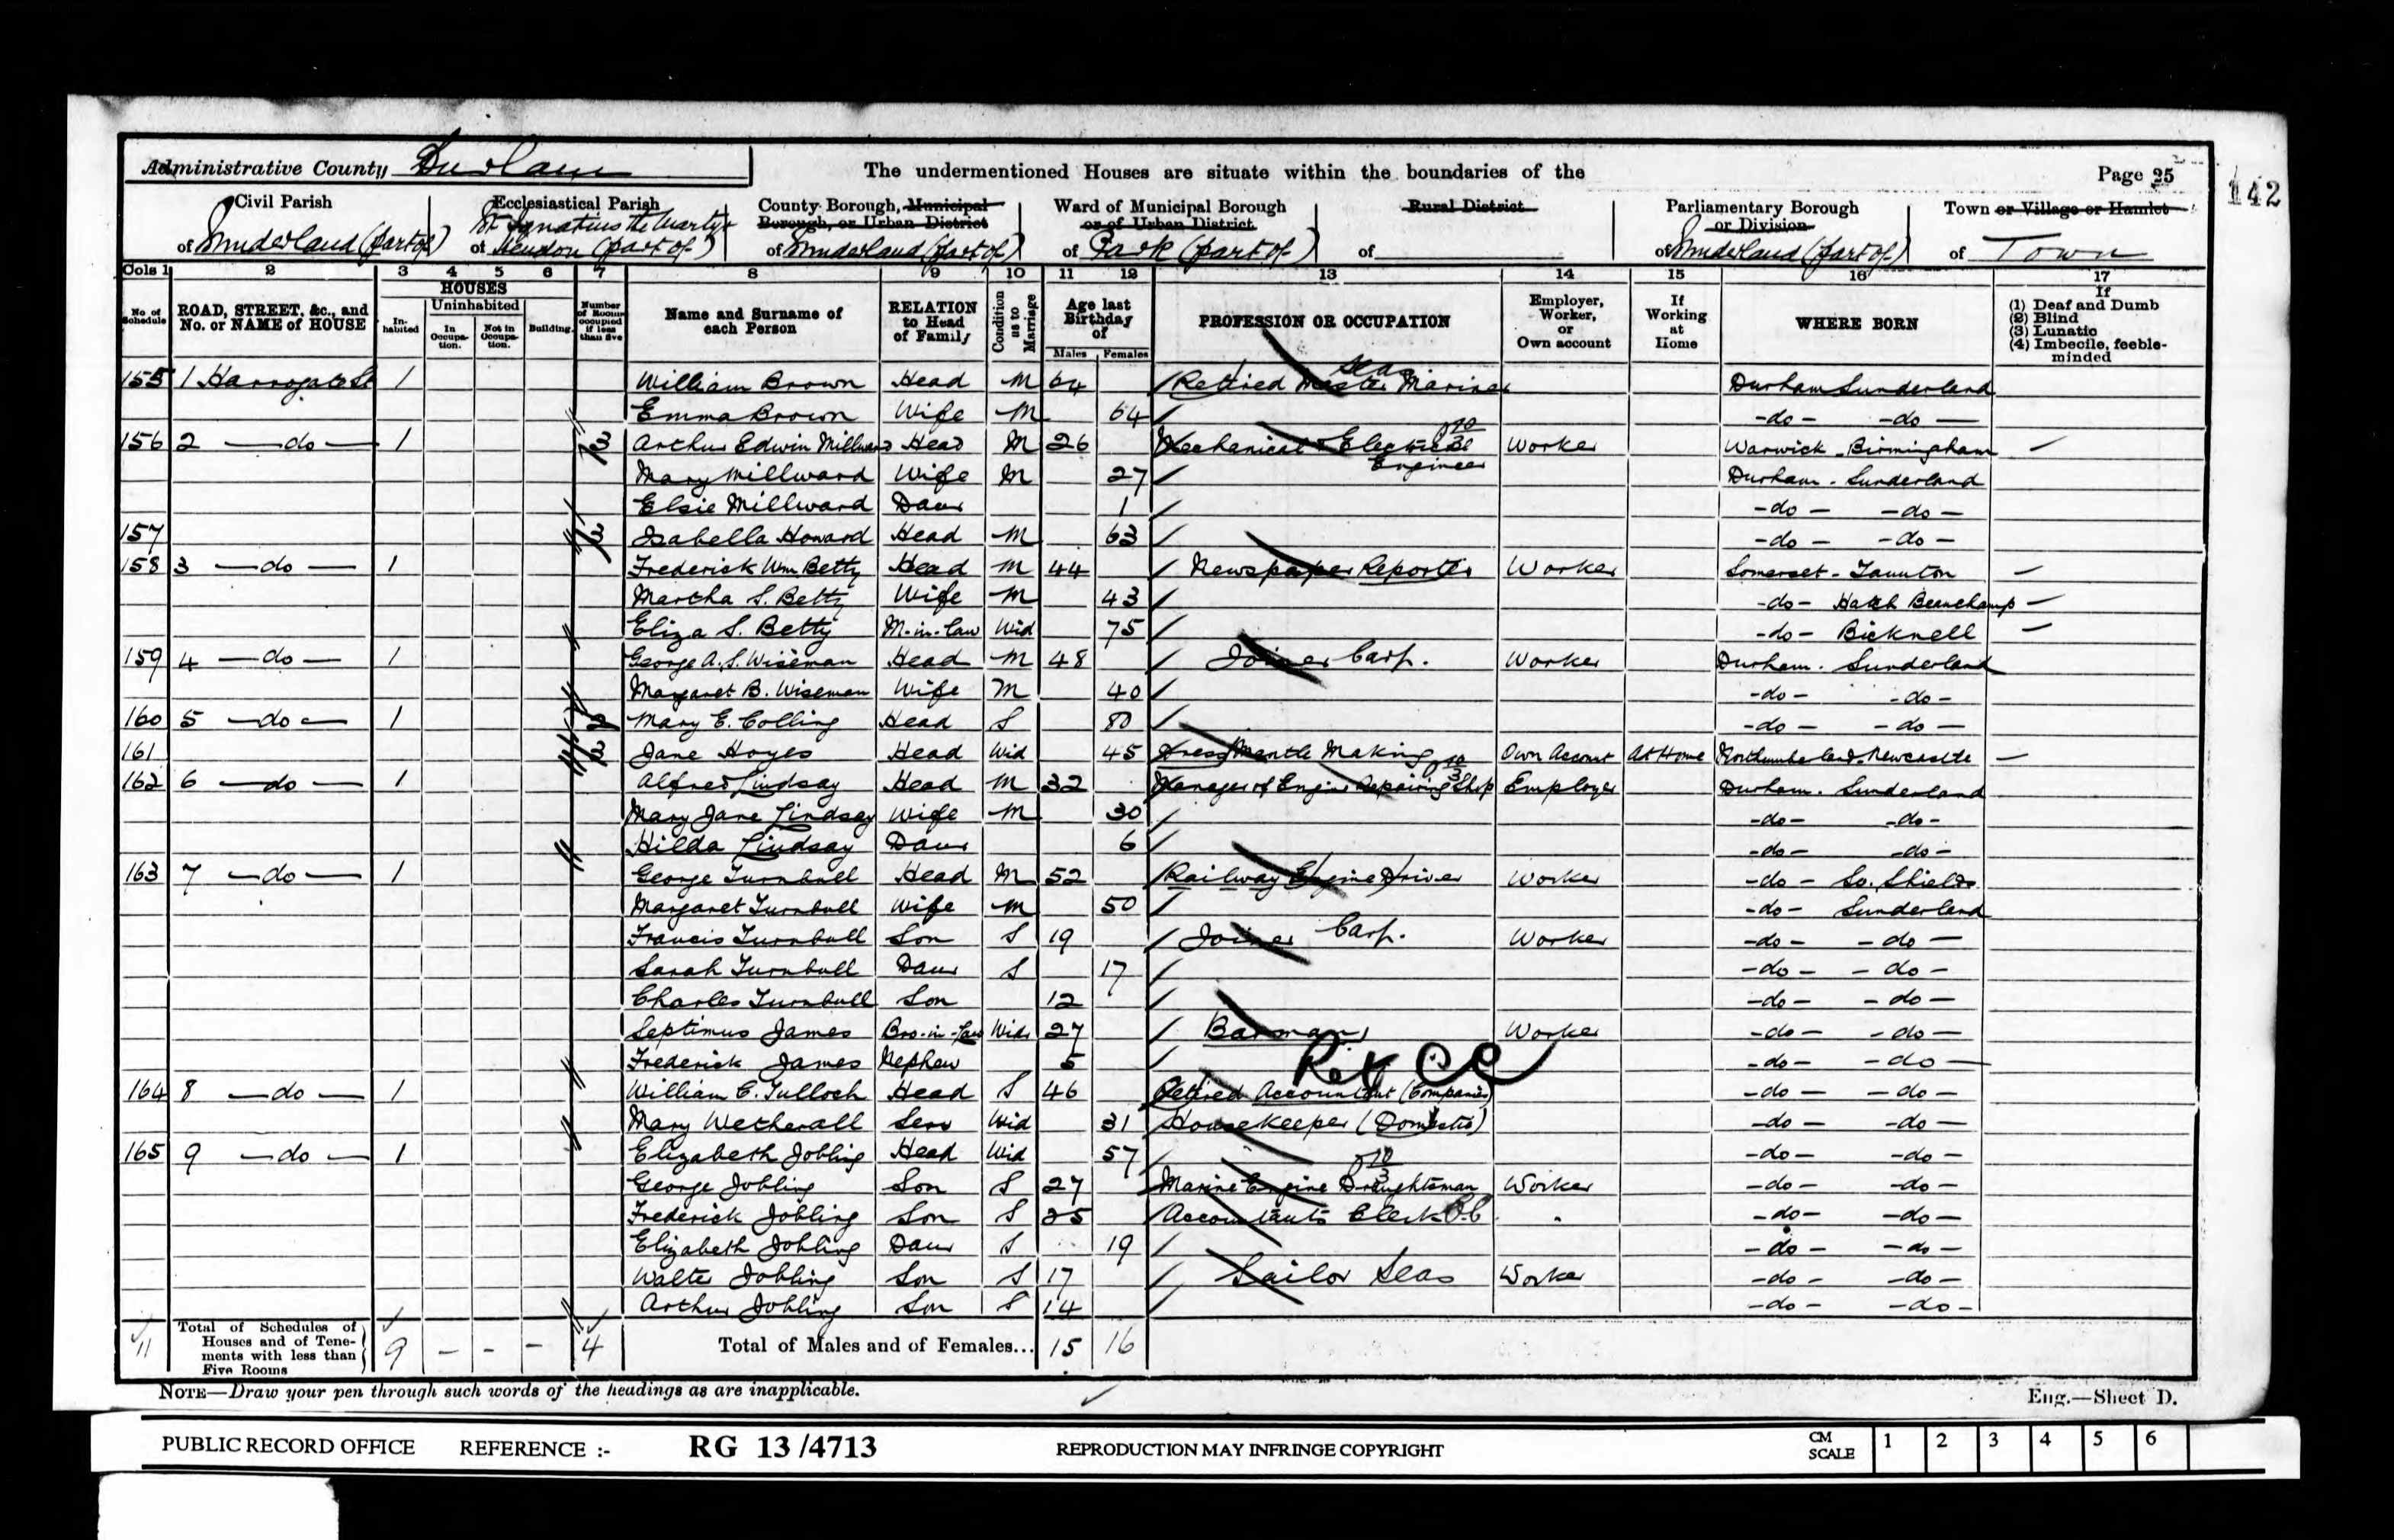 Administrative County Durham The undermentioned Houses are situate within the boundaries of the Page 25
142
Civil Parish Ecclesiastical Parish County Borough, Municipal Borough, or Urban District Ward of Municipal Borough or of Urban District Rural District Parliamentary Borough or Division Town or Village or Hamlet
of Sunderland (part of) St Ignatius the Martyr of Hendon (part of) of Sunderland (part of) of Park (part of) of of Sunderland (part of) of Town
Cols 1 2 3 4 5 6 7 8 9 10 11 12 13 14 15 16 17
No. of Schedule ROAD, STREET, &c., and No. or NAME of HOUSE HOUSES Inhabited Uninhabited In Occupation. Not in Occupation. Building. Number of Rooms occupied if less than five Name and Surname of each Person RELATION to Head of Family Condition as to Marriage Age last Birthday of Males Females PROFESSION OR OCCUPATION Employer, Worker, or Own account If Working at Home WHERE BORN If (1) Deaf and Dumb (2) Blind (3) Lunatic (4) Imbecile, feeble-minded
155 1 Harrogate St 1 William Brown Head M 64 Retired Master Mariner Seas Durham Sunderland
Emma Brown Wife M 64 -do- -do-
156 2 -do- 1 3 Arthur Edwin Millward Head M 26 Mechanical Electrical Engineer Worker Warwick - Birmingham
Mary Millward Wife M 27 Durham - Sunderland
Elsie Millward Daur 1 -do- -do-
157 3 Isabella Howard Head M 63 -do- -do-
158 3 -do- 1 Frederick Wm Betty Head M 44 Newspaper Reporter Worker Somerset - Taunton
Martha S. Betty Wife M 43 -do- Hatch Beauchamp
Eliza S. Betty M-in-law Wid 75 -do- Bicknell
159 4 -do- 1 George A. S. Wiseman Head M 48 Joiner Carp. Worker Durham. Sunderland
Margaret B. Wiseman Wife M 40 -do- -do-
160 5 -do- 1 2 Mary E. Colling Head S 80 -do- -do-
161 3 Jane Hoyes Head Wid 45 Dress Mantle Making Own Account At Home Northumberland Newcastle
162 6 -do- 1 Alfred Lindsay Head M 32 Manager of Engine Repairing Shop Employer Durham. Sunderland
Mary Jane Lindsay Wife M 30 -do- -do-
Hilda Lindsay Daur 6 -do- -do-
163 7 -do- 1 George Turnbull Head M 52 Railway Engine Driver Worker -do- So. Shields
Margaret Turnbull Wife M 50 -do- Sunderland
Francis Turnbull Son S 19 Joiner Carp. Worker -do- -do-
Sarah Turnbull Daur S 17 -do- -do-
Charles Turnbull Son 12 -do- -do-
Septimus James Bro-in-law Widr 27 Barman Worker -do- -do-
Frederick James Nephew 5 -do- -do-
164 8 -do- 1 William C. Tulloch Head S 46 Retired Accountant (Companies) -do- -do-
Mary Wetherall Serv Wid 31 Housekeeper (Domestic) -do- -do-
165 9 -do- 1 Elizabeth Jobling Head Wid 57 -do- -do-
George Jobling Son S 27 Marine Engine Draughtsman Worker -do- -do-
Frederick Jobling Son S 25 Accountants Clerk -do- -do-
Elizabeth Jobling Daur S 19 -do- -do-
Walter Jobling Son S 17 Sailor Seas Worker -do- -do-
Arthur Jobling Son S 14 -do- -do-
11 Total of Schedules of Houses and of Tenements with less than Five Rooms 9 - - - 4 Total of Males and of Females... 15 16
NOTE—Draw your pen through such words of the headings as are inapplicable. Eng.—Sheet D.
PUBLIC RECORD OFFICE REFERENCE :- RG 13/4713 REPRODUCTION MAY INFRINGE COPYRIGHT CM SCALE 1 2 3 4 5 6